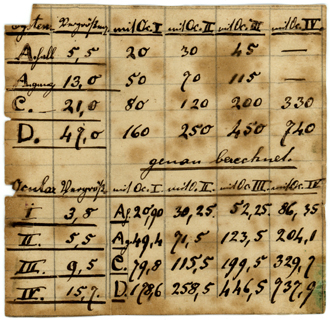 system. Vergrößrg. mit Oc. I mit Oc. II mit Oc. III mit Oc. IV.
A 5,5 20 30 45 —
A 13,0 50 70 115 —
C. — 21,0 80 120 200 330
D. 47,0 160 250 450 740
genau berechnet.
Ocular Vergröß. mit Oc. I. mit Oc. II. mit Oc. III. mit Oc. IV.
I 3,8 A. 20,90 30,25. 52,25. 86,35
II. 5,5 A. 49,4 71,5 123,5 204,1
III. 9,5 C. 79,8 115,5 199,5 329,7
IV. 15,7. D 178,6 258,5 446,5 737,9